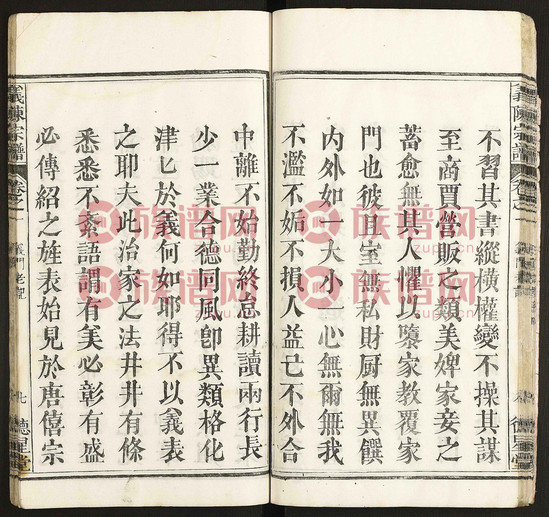 不習其書縱橫權變不操其謀
至商賈營販之類美婢家妾之
蓄愈無其人懼以隳家教覆家
門也彼且室無私財厨無異饌
內外如一大小一心無爾無我
不濫不妬不損人益己不外合
中離不始勤終怠耕讀兩行長
少一業合德回風卽異類格化
津匕於義何如耶得不以義表
之耶夫此治家之法井井有條
悉悉不紊語謂有美必彰有盛
必傳紹之旌表始見於唐僖宗
義陳宗譜
卷之一
德星堂
族谱网